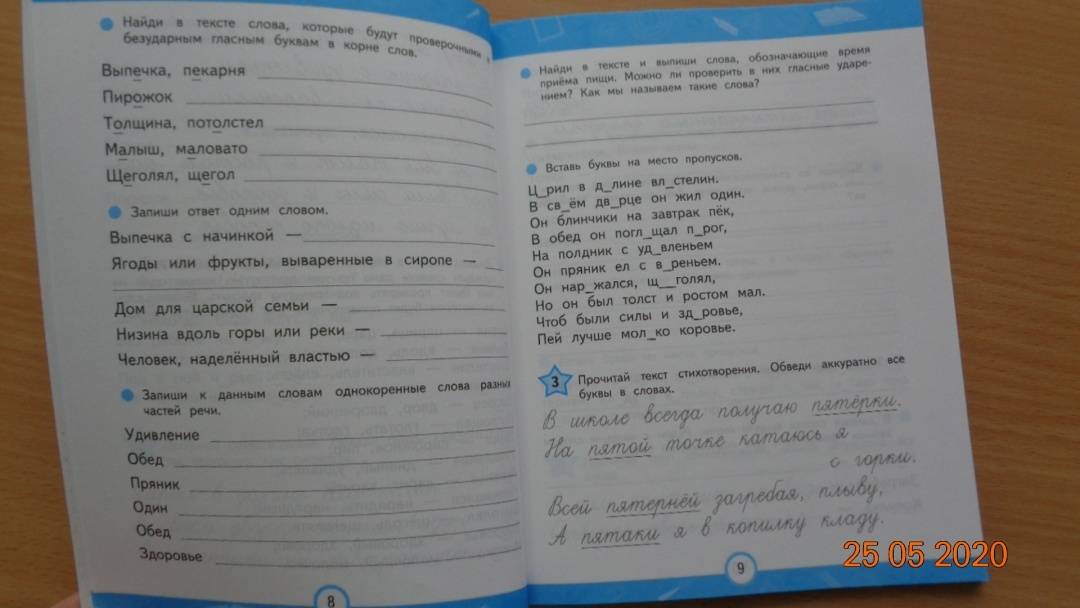 Найди в тексте слова, которые будут проверочными к
безударным гласным буквам в корне слов.
Выпечка, пекарня
Пирожок
Толщина, потолстел
Малыш, маловато
Щеголял, щегол
Запиши ответ одним словом.
Выпечка с начинкой —
Ягоды или фрукты, вываренные в сиропе —
Дом для царской семьи —
Низина вдоль горы или реки —
Человек, наделённый властью —
Запиши к данным словам однокоренные слова разных
частей речи.
Удивление
Обед
Пряник
Один
Обед
Здоровье
8
Найди в тексте и выпиши слова, обозначающие время
приёма пищи. Можно ли проверить в них гласные ударе-
нием? Как мы называем такие слова?
Вставь буквы на место пропусков.
Ц_рил в д_лине вл_стелин.
В св_ём дв_рце он жил один.
Он блинчики на завтрак пёк,
В обед он погл_щал п_рог,
На полдник с уд_вленьем
Он пряник ел с в_реньем.
Он нар_жался, щ__голял,
Но он был толст и ростом мал.
Чтоб были силы и зд_ровье,
Пей лучше мол_ко коровье.
3 Прочитай текст стихотворения. Обведи аккуратно все
буквы в словах.
В школе всегда получаю пятёрки.
На пятой точке катаюсь я
с горки.
Всей пятернёй загребая, плыву,
А пятаки я в копилку кладу.
9
25 05 2020